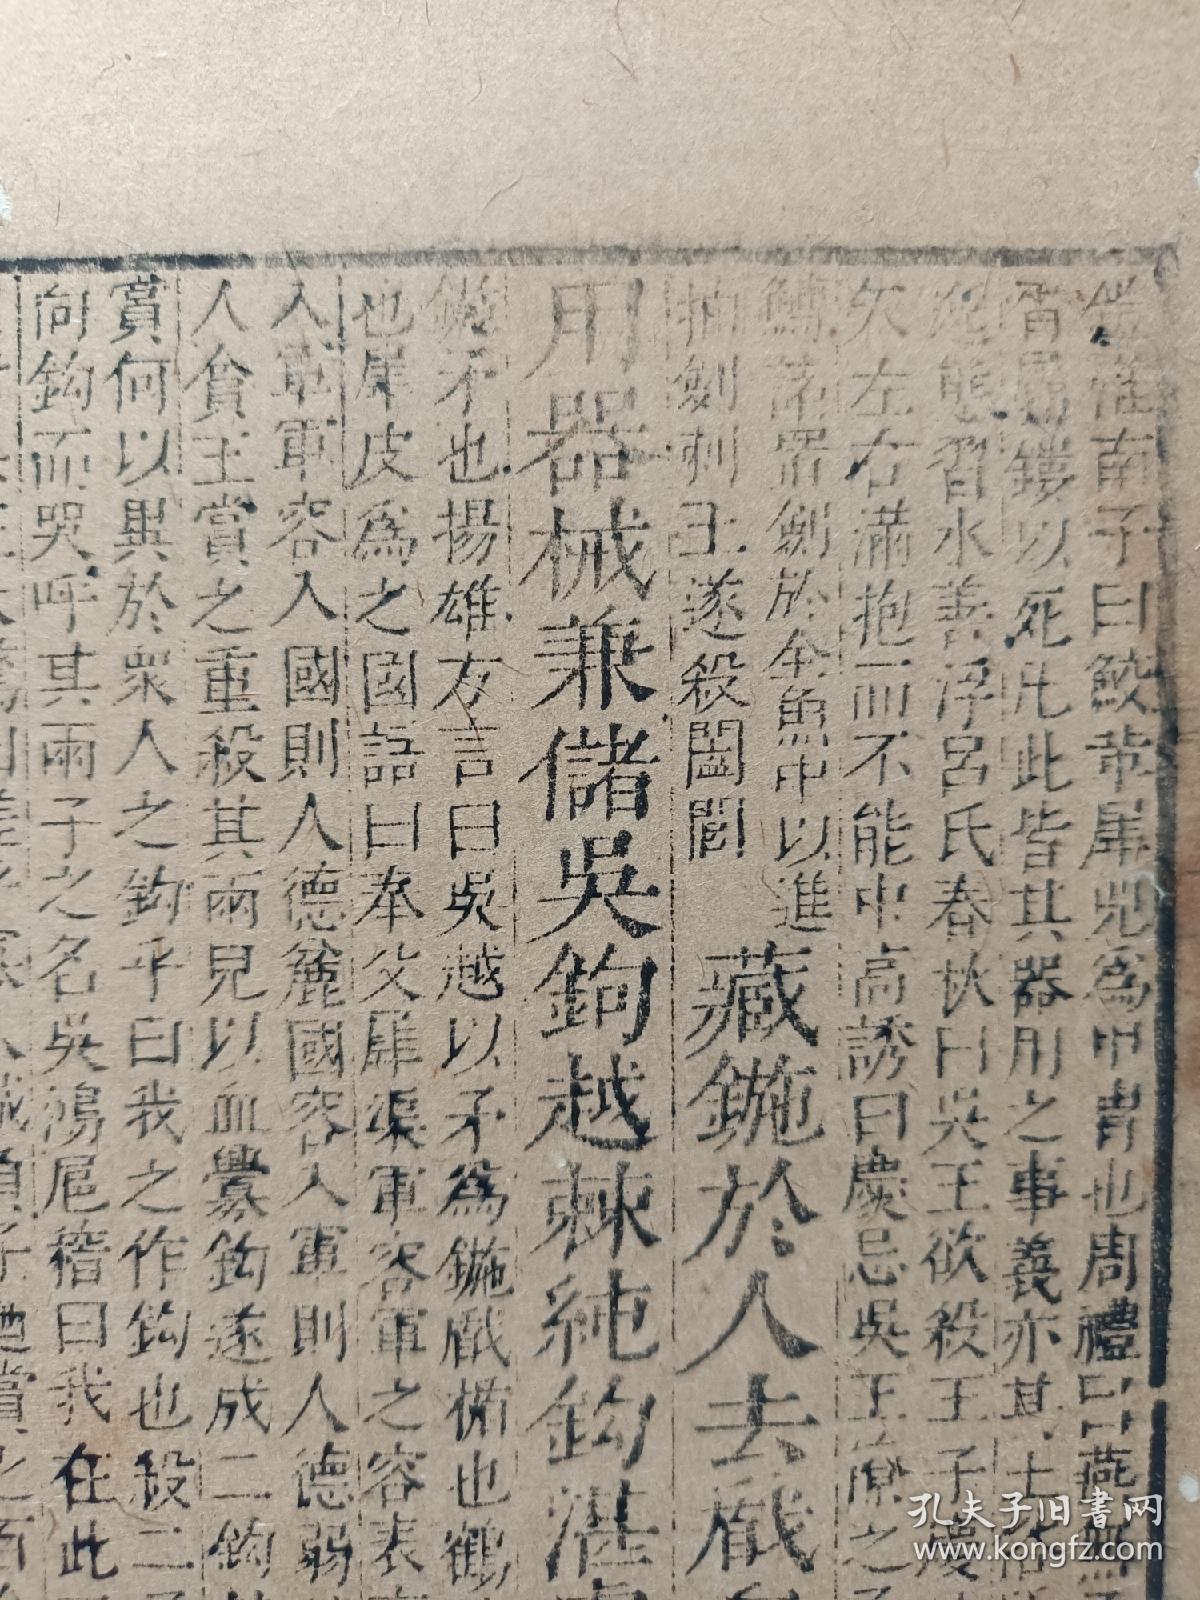 淮南子曰鮫革犀兕為甲冑也周禮曰燕無
鏤以死凡此皆其器用之事義亦其士俗
態習水善浮呂氏春秋曰吳王欲殺王子慶
矢左右滿抱而不能中高誘曰慶忌吳王僚之子
鱄諸置劍於全魚中以進
抽劍刺王遂殺闔閭
藏鍦於人去戙
用器械兼儲吳鉤越棘純鈞湛
鍦矛也揚雄方言曰吳越以矛為鍦戙楯也鶴
也犀皮為之國語曰奉文犀渠軍容軍之容表
入軍軍容入國則人德麄國容入軍則人德弱
人貪王賞之重殺其兩兒以血釁鈎遂成二鈎
賞何以異於衆人之鈎乎曰我之作鈎也殺二子
向鈎而哭呼其兩子之名吳鴻扈稽曰我在此
孔夫子旧書网
www.kongfz.com